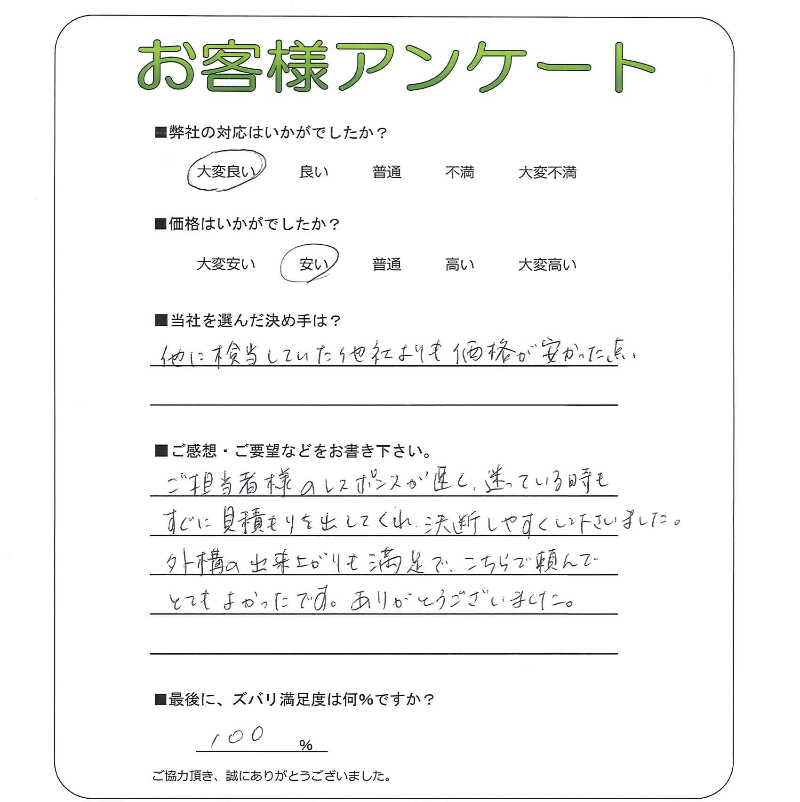 お客様アンケート
■弊社の対応はいかがでしたか？
大変良い 良い 普通 不満 大変不満
■価格はいかがでしたか？
大変安い 安い 普通 高い 大変高い
■当社を選んだ決め手は？
他に検当していた他社よりも価格が安かった点。
■ご感想・ご要望などをお書き下さい。
ご担当者様のレスポンスが速く、迷っている時も
すぐに見積もりを出してくれ、決断しやすくして下さいました。
外構の出来上がりも満足で、こちらで頼んで
とてもよかったです。ありがとうございました。
■最後に、ズバリ満足度は何%ですか？
100 %
ご協力頂き、誠にありがとうございました。